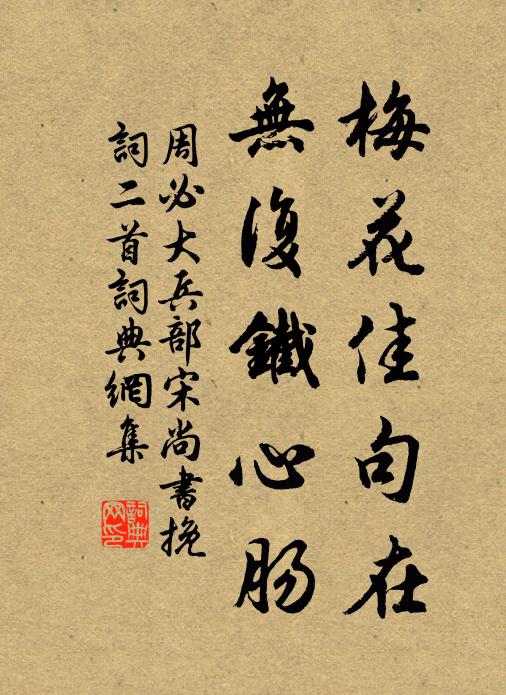 梅花佳句在
無復鐵心腸
周必大兵部宋尚書挽
詞二首詞典網集
詞典
网印